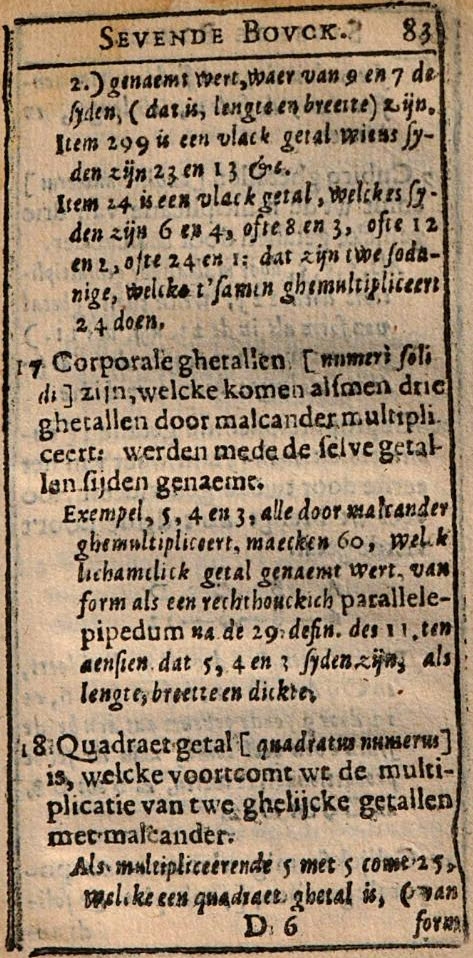 SEVENDE BOVCK. 83
2.) genaemt wert, waer van 9 en 7 de
syden, ( dat is, lengte en breette) zijn.
Item 299 is een vlack getal wiens sy-
den zijn 23 en 13 &c.
Item 24 is een vlack getal, welckes sy-
den zijn 6 en 4, ofte 8 en 3, ofte 12
en 2, ofte 24 en 1: dat zijn twe soda-
nige, welcke t'samen ghemultipliceert
24 doen.
17 Corporale ghetallen [numeri soli
di] zijn, welcke komen alsmen drie
ghetallen door malcander multipli
ceert: werden mede de selve getal-
len sijden genaemt.
Exempel, 5, 4 en 3, alle door malcander
ghemultipliceert, maecken 60, welck
lichamelick getal genaemt wert, van
form als een rechthouckich parallele-
pipedum na de 29. defin. des 11, ten
aensien dat 5, 4 en 3 syden zijn, als
lengte, breette en dickte,
18 Quadraet getal [quadratus numerus]
is, welcke voortcomt wt de multi-
plicatie van twe ghelijcke getallen
met malcander.
Als multipliceerende 5 met 5 comt 25,
welcke een quadraet ghetal is, (van
D 6 form